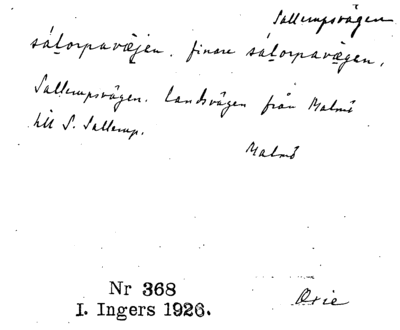 Sallerupsvägen
sálorpavæjen. finare sálorpavægen,
Sallerupsvägen. Landsvägen från Malmö
till S. Sallerup.
Malmö
Nr 368
I. Ingers 1926.
Oxie